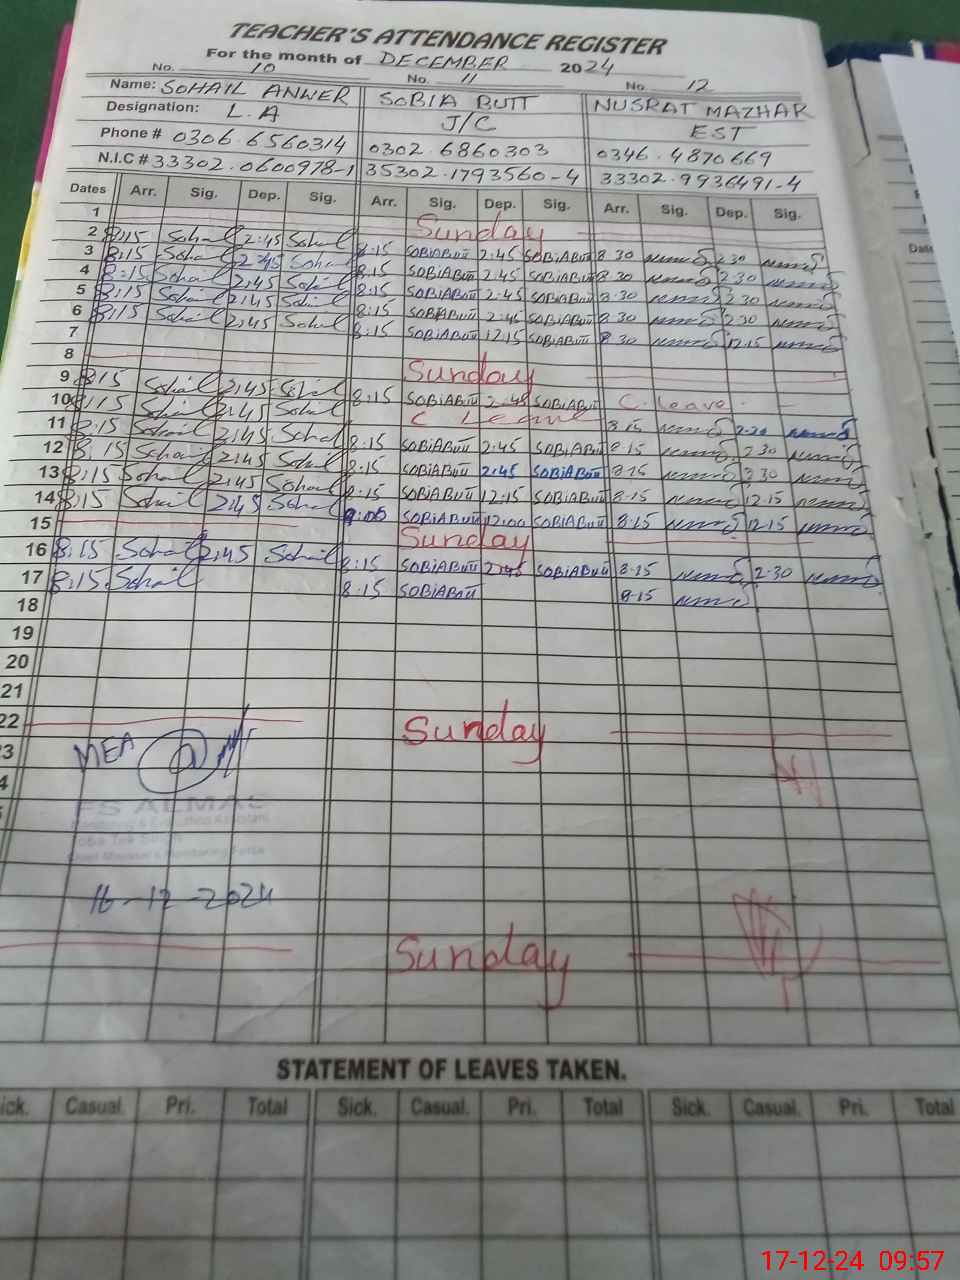 TEACHER'S ATTENDANCE REGISTER
For the month of DECEMBER 2024
No. 10 No. 11 No. 12
Name: SOHAIL ANWER SOBIA BUTT NUSRAT MAZHAR
Designation: L.A J/C EST
Phone # 0306.6560314 0302.6860303 0346.4870669
N.I.C # 33302.0600978-1 35302.1793560-4 33302.9936491-4
Dates Arr. Sig. Dep. Sig. Arr. Sig. Dep. Sig. Arr. Sig. Dep. Sig.
1 Sunday
2 8:15 Sohail 2:45 Sohail 8:15 SOBIABUTT 2:45 SOBIABUTT 8.30 2.30
3 8:15 Sohail 2:45 Sohail 8.15 SOBIABUTT 2:45 SOBIABUTT 8.30 2.30
4 8:15 Sohail 2:45 Sohail 8:15 SOBIABUTT 2:45 SOBIABUTT 8.30 2.30
5 8:15 Sohail 2:45 Sohail 8:15 SOBIABUTT 2:45 SOBIABUTT 8.30 2.30
6 8:15 Sohail 2:45 Sohail 8:15 SOBIABUTT 12:15 SOBIABUTT 8.30 12.15
7
8 Sunday
9 8:15 Sohail 2:45 Sohail 8:15 SOBIABUTT 2:45 SOBIABUTT C. Leave.
10 8:15 Sohail 2:45 Sohail C Leave 8.15
11 8:15 Sohail 2:45 Sohail 8:15 SOBIABUTT 2:45 SOBIABUTT 8.15 2.30
12 8:15 Sohail 2:45 Sohail 8:15 SOBIABUTT 2:45 SOBIABUTT 8.15 2.30
13 8:15 Sohail 2:45 Sohail 8:15 SOBIABUTT 12:15 SOBIABUTT 8.15 12.15
14 8:15 Sohail 2:45 Sohail SOBIABUTT 12:00 SOBIABUTT 8.15 12.15
15 Sunday
16 8:15 Sohail 2:45 Sohail 8:15 SOBIABUTT 2:45 SOBIABUTT 8.15 2.30
17 8:15 Sohail 8:15 SOBIABUTT 8.15
18
19
20
21
22 Sunday
MEA
16-12-2024
Sunday
STATEMENT OF LEAVES TAKEN.
Casual. Pri. Total Sick. Casual. Pri. Total Sick. Casual. Pri. Total
17-12-24 09:57